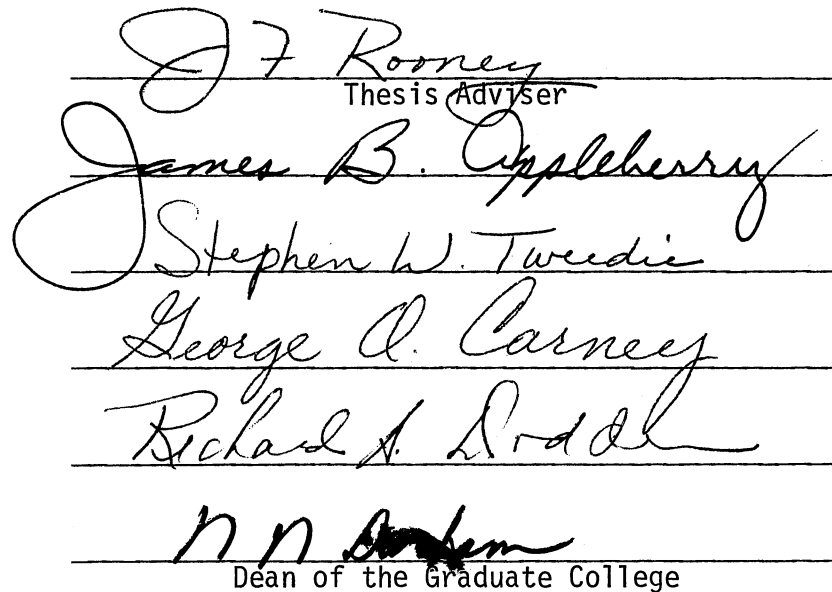 J F Rooney
Thesis Adviser
James B. Appleberry
Stephen W. Tweedie
George O. Carney
Richard A. Dodder
N N Durham
Dean of the Graduate College